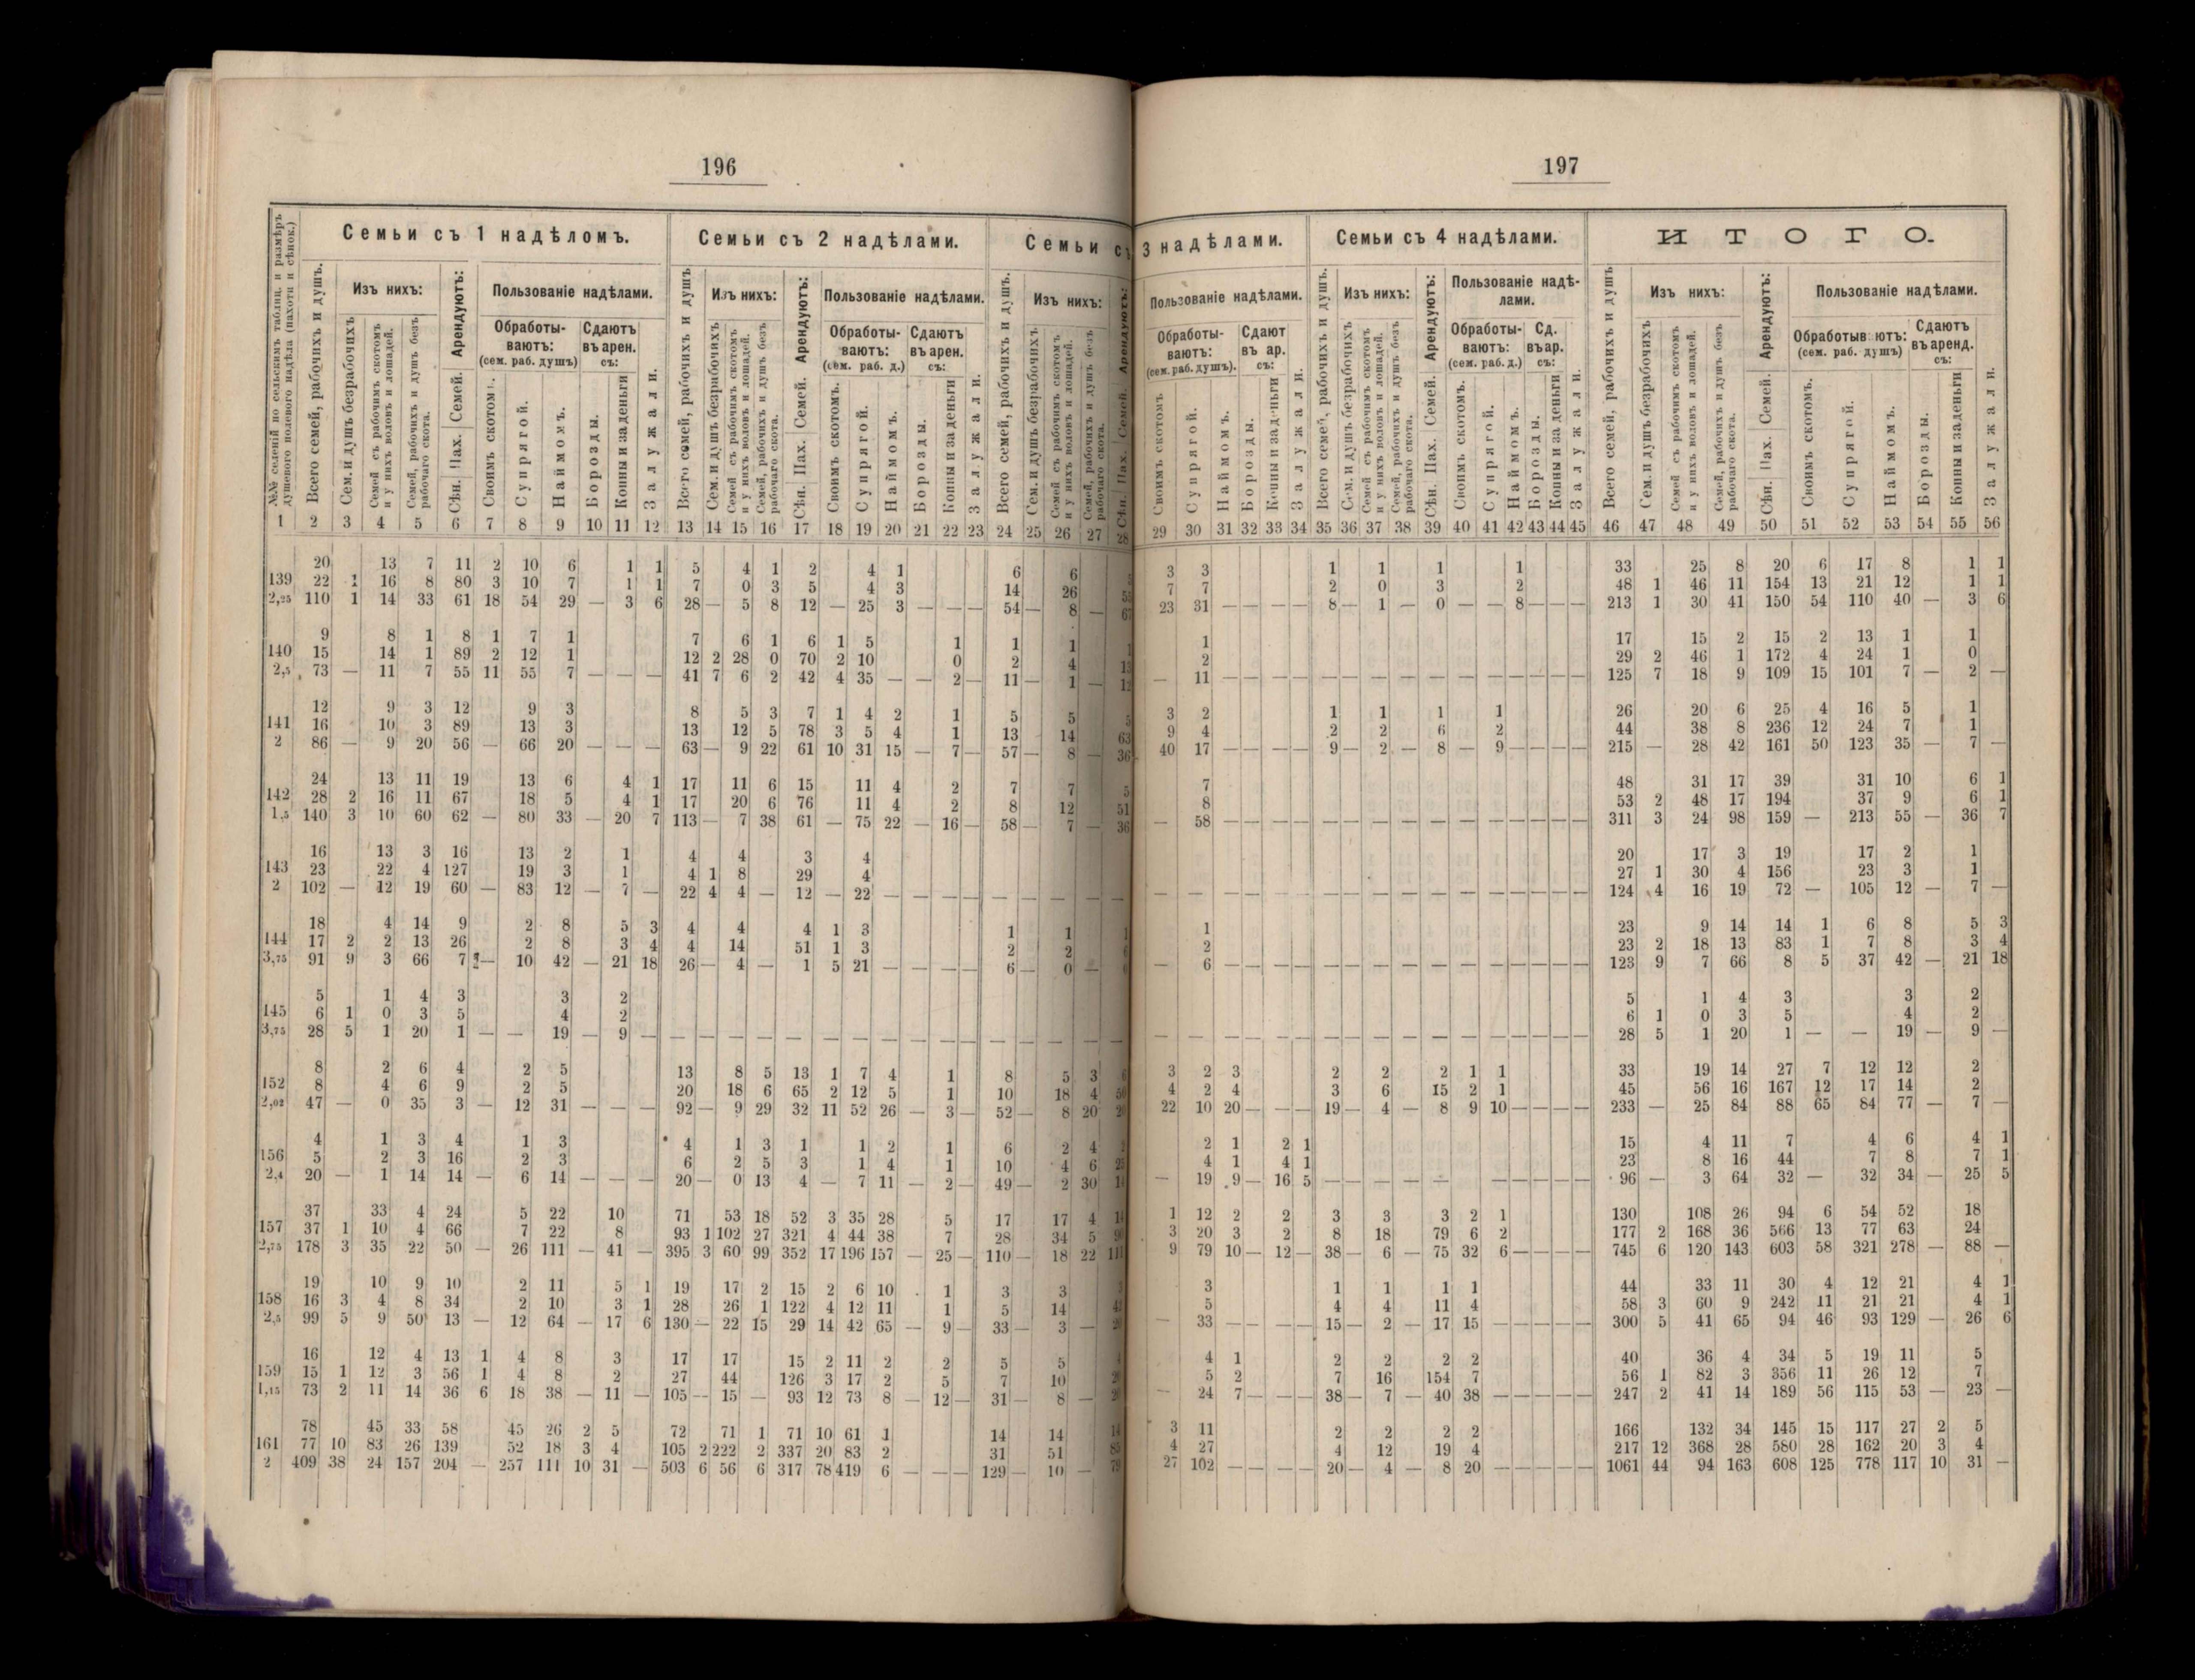 196
Семьи съ 1 надѣломъ. Семьи съ 2 надѣлами. Семьи съ
№№ селеній по сельскимъ таблиц. и размѣръ душевого полевого надѣла (пахоти и сѣнок.)
Всего семей, рабочихъ и душъ.
Изъ нихъ:
Сем. и душъ безрабочихъ
Семей съ рабочимъ скотомъ и у нихъ воловъ и лошадей.
Семей, рабочихъ и душъ безъ рабочаго скота.
Арендуютъ:
Сѣн. Пах. Семей.
Пользованіе надѣлами.
Обработы-
ваютъ:
(сем. раб. душъ)
Своимъ скотомъ.
Супрягой.
Наймомъ.
Сдаютъ
въ арен.
съ:
Борозды.
Копны и за деньги
Залужали.
Всего семей, рабочихъ и душъ
Изъ нихъ:
Сем. и душъ безрабочихъ
Семей съ рабочимъ скотомъ и у нихъ воловъ и лошадей.
Семей, рабочихъ и душъ безъ рабочаго скота.
Арендуютъ:
Сѣн. Пах. Семей.
Пользованіе надѣлами.
Обработы-
ваютъ:
(сем. раб. д.)
Своимъ скотомъ.
Супрягой.
Наймомъ.
Сдаютъ
въ арен.
съ:
Борозды.
Копны и за деньги
Залужали.
Всего семей, рабочихъ и душъ.
Изъ нихъ:
Сем. и душъ безрабочихъ
Семей съ рабочимъ скотомъ и у нихъ воловъ и лошадей.
Семей, рабочихъ и душъ безъ рабочаго скота.
Арендуютъ:
Сѣн. Пах. Семей.
1 2 3 4 5 6 7 8 9 10 11 12 13 14 15 16 17 18 19 20 21 22 23 24 25 26 27 28
20 13 7 11 2 10 6 1 1 5 4 1 2 4 1 6 6
139 22 1 16 8 80 3 10 7 1 1 7 0 3 5 4 3 14 26
2,25 110 1 14 33 61 18 54 29 — 3 6 28 — 5 8 12 — 25 3 — — — 54 — 8 —
9 8 1 8 1 7 1 7 6 1 6 1 5 1 1 1
140 15 14 1 89 2 12 1 12 2 28 0 70 2 10 0 2 4
2,5 73 — 11 7 55 11 55 7 — — — 41 7 6 2 42 4 35 — — 2 — 11 — 1 — 12
12 9 3 12 9 3 8 5 3 7 1 4 2 1 5 5 5
141 16 10 3 89 13 3 13 12 5 78 3 5 4 1 13 14 63
2 86 — 9 20 56 — 66 20 — — — 63 — 9 22 61 10 31 15 — 7 — 57 — 8 — 36
24 13 11 19 13 6 4 1 17 11 6 15 11 4 2 7 7 5
142 28 2 16 11 67 18 5 4 1 17 20 6 76 11 4 2 8 12 51
1,5 140 3 10 60 62 — 80 33 — 20 7 113 — 7 38 61 — 75 22 — 16 — 58 — 7 — 36
16 13 3 16 13 2 1 4 4 3 4
143 23 22 4 127 19 3 1 4 1 8 29 4
2 102 — 12 19 60 — 83 12 — 7 — 22 4 4 — 12 — 22 — — — — — — — — —
18 4 14 9 2 8 5 3 4 4 4 1 3 1 1
144 17 2 2 13 26 2 8 3 4 4 14 51 1 3 2 2
3,75 91 9 3 66 7 — 10 42 — 21 18 26 — 4 — 1 5 21 — — — — 6 — 0 —
5 1 4 3 3 2
145 6 1 0 3 5 4 2
3,75 28 5 1 20 1 — — 19 — 9 — — — — — — — — — — — — — — — — —
8 2 6 4 2 5 13 8 5 13 1 7 4 1 8 5 3
152 8 4 6 9 2 5 20 18 6 65 2 12 5 1 10 18 4
2,02 47 — 0 35 3 — 12 31 — — — 92 — 9 29 32 11 52 26 — 3 — 52 — 8 20
4 1 3 4 1 3 4 1 3 1 1 2 1 6 2 4
156 5 2 3 16 2 3 6 2 5 3 1 4 1 10 4 6
2,4 20 — 1 14 14 — 6 14 — — — 20 — 0 13 4 — 7 11 — 2 — 49 — 2 30
37 33 4 24 5 22 10 71 53 18 52 3 35 28 5 17 17 4 14
157 37 1 10 4 66 7 22 8 93 1 102 27 321 4 44 38 7 28 34 5
2,75 178 3 35 22 50 — 26 111 — 41 — 395 3 60 99 352 17 196 157 — 25 — 110 — 18 22 111
19 10 9 10 2 11 5 1 19 17 2 15 2 6 10 1 3 3
158 16 3 4 8 34 2 10 3 1 28 26 1 122 4 12 11 1 5 14
2,5 99 5 9 50 13 — 12 64 — 17 6 130 — 22 15 29 14 42 65 — 9 — 33 — 3 —
16 12 4 13 1 4 8 3 17 17 15 2 11 2 2 5 5
159 15 1 12 3 56 1 4 8 2 27 44 126 3 17 2 5 7 10
1,15 73 2 11 14 36 6 18 38 — 11 — 105 — 15 — 93 12 73 8 — 12 — 31 — 8 —
78 45 33 58 45 26 2 5 72 71 1 71 10 61 1 14 14 14
161 77 10 83 26 139 52 18 3 4 105 2 222 2 337 20 83 2 31 51 85
2 409 38 24 157 204 — 257 111 10 31 — 503 6 56 6 317 78 419 6 — — — 129 — 10 — 79
197
3 надѣлами. Семьи съ 4 надѣлами. ИТОГО.
Пользованіе надѣлами.
Обработы-
ваютъ:
(сем. раб. душъ).
Своимъ скотомъ
Супрягой.
Наймомъ.
Сдают
въ ар.
съ:
Борозды.
Копны и за деньги
Залужали.
Всего семей, рабочихъ и душъ.
Изъ нихъ:
Сем. и душъ безрабочихъ
Семей съ рабочимъ скотомъ и у нихъ воловъ и лошадей.
Семей, рабочихъ и душъ безъ рабочаго скота.
Арендуютъ:
Сѣн. Пах. Семей.
Пользованіе надѣ-
лами.
Обработы-
ваютъ:
(сем. раб. д.)
Своимъ скотомъ.
Супрягой.
Наймомъ.
Сд.
въ ар.
съ:
Борозды.
Копны и за деньги
Залужали.
Всего семей, рабочихъ и душъ
Изъ нихъ:
Сем. и душъ безрабочихъ
Семей съ рабочимъ скотомъ и у нихъ воловъ и лошадей.
Семей, рабочихъ и душъ безъ рабочаго скота.
Арендуютъ:
Сѣн. Пах. Семей.
Пользованіе надѣлами.
Обрабатыв ютъ:
(сем. раб. душъ)
Своимъ скотомъ.
Супрягой.
Наймомъ.
Сдаютъ
въ аренд.
съ:
Борозды.
Копны и за деньги
Залужали.
29 30 31 32 33 34 35 36 37 38 39 40 41 42 43 44 45 46 47 48 49 50 51 52 53 54 55 56
3 3 1 1 1 1 33 25 8 20 6 17 8 1 1
7 7 2 0 3 2 48 1 46 11 154 13 21 12 1 1
23 31 — — — — 8 — 1 — 0 — — 8 — — — 213 1 30 41 150 54 110 40 — 3 6
1 17 15 2 15 2 13 1 1
2 29 2 46 1 172 4 24 1 0
— 11 — — — — — — — — — — — — — — — 125 7 18 9 109 15 101 7 — 2 —
3 2 1 1 1 1 26 20 6 25 4 16 5 1
9 4 2 2 6 2 44 38 8 236 12 24 7 1
40 17 — — — — 9 — 2 — 8 — 9 — — — — 215 — 28 42 161 50 123 35 — 7 —
7 48 31 17 39 31 10 6 1
8 53 2 48 17 194 37 9 6 1
— 58 — — — — — — — — — — — — — — — 311 3 24 98 159 — 213 55 — 36 7
20 17 3 19 17 2 1
27 1 30 4 156 23 3 1
— — — — — — — — — — — — — — — — — 124 4 16 19 72 — 105 12 — 7 —
1 23 9 14 14 1 6 8 5 3
2 23 2 18 13 83 1 7 8 3 4
— 6 — — — — — — — — — — — — — — — 123 9 7 66 8 5 37 42 — 21 18
5 1 4 3 3 2
6 1 0 3 5 4 2
— — — — — — — — — — — — — — — — — 28 5 1 20 1 — — 19 — 9 —
3 2 3 2 2 2 1 1 33 19 14 27 7 12 12 2
4 2 4 3 6 15 2 1 45 56 16 167 12 17 14 2
22 10 20 — — — 19 — 4 — 8 9 10 — — — — 233 — 25 84 88 65 84 77 — 7 —
2 1 2 1 15 4 11 7 4 6 4 1
4 1 4 1 23 8 16 44 7 8 7 1
— 19 9 — 16 5 — — — — — — — — — — — 96 — 3 64 32 — 32 34 — 25 5
1 12 2 2 3 3 3 2 1 130 108 26 94 6 54 52 18
3 20 3 2 8 18 79 6 2 177 2 168 36 566 13 77 63 24
9 79 10 — 12 — 38 — 6 — 75 32 6 — — — — 745 6 120 143 603 58 321 278 — 88 —
3 1 1 1 1 44 33 11 30 4 12 21 4 1
5 4 4 11 4 58 3 60 9 242 11 21 21 4 1
— 33 — — — — 15 — 2 — 17 15 — — — — — 300 5 41 65 94 46 93 129 — 26 6
4 1 2 2 2 2 40 36 4 34 5 19 11 5
5 2 7 16 154 7 56 1 82 3 356 11 26 12 7
— 24 7 — — — 38 — 7 — 40 38 — — — — — 247 2 41 14 189 56 115 53 — 23 —
3 11 2 2 2 2 166 132 34 145 15 117 27 2 5
4 27 4 12 19 4 217 12 368 28 580 28 162 20 3 4
27 102 — — — — 20 — 4 — 8 20 — — — — — 1061 44 94 163 608 125 778 117 10 31 —